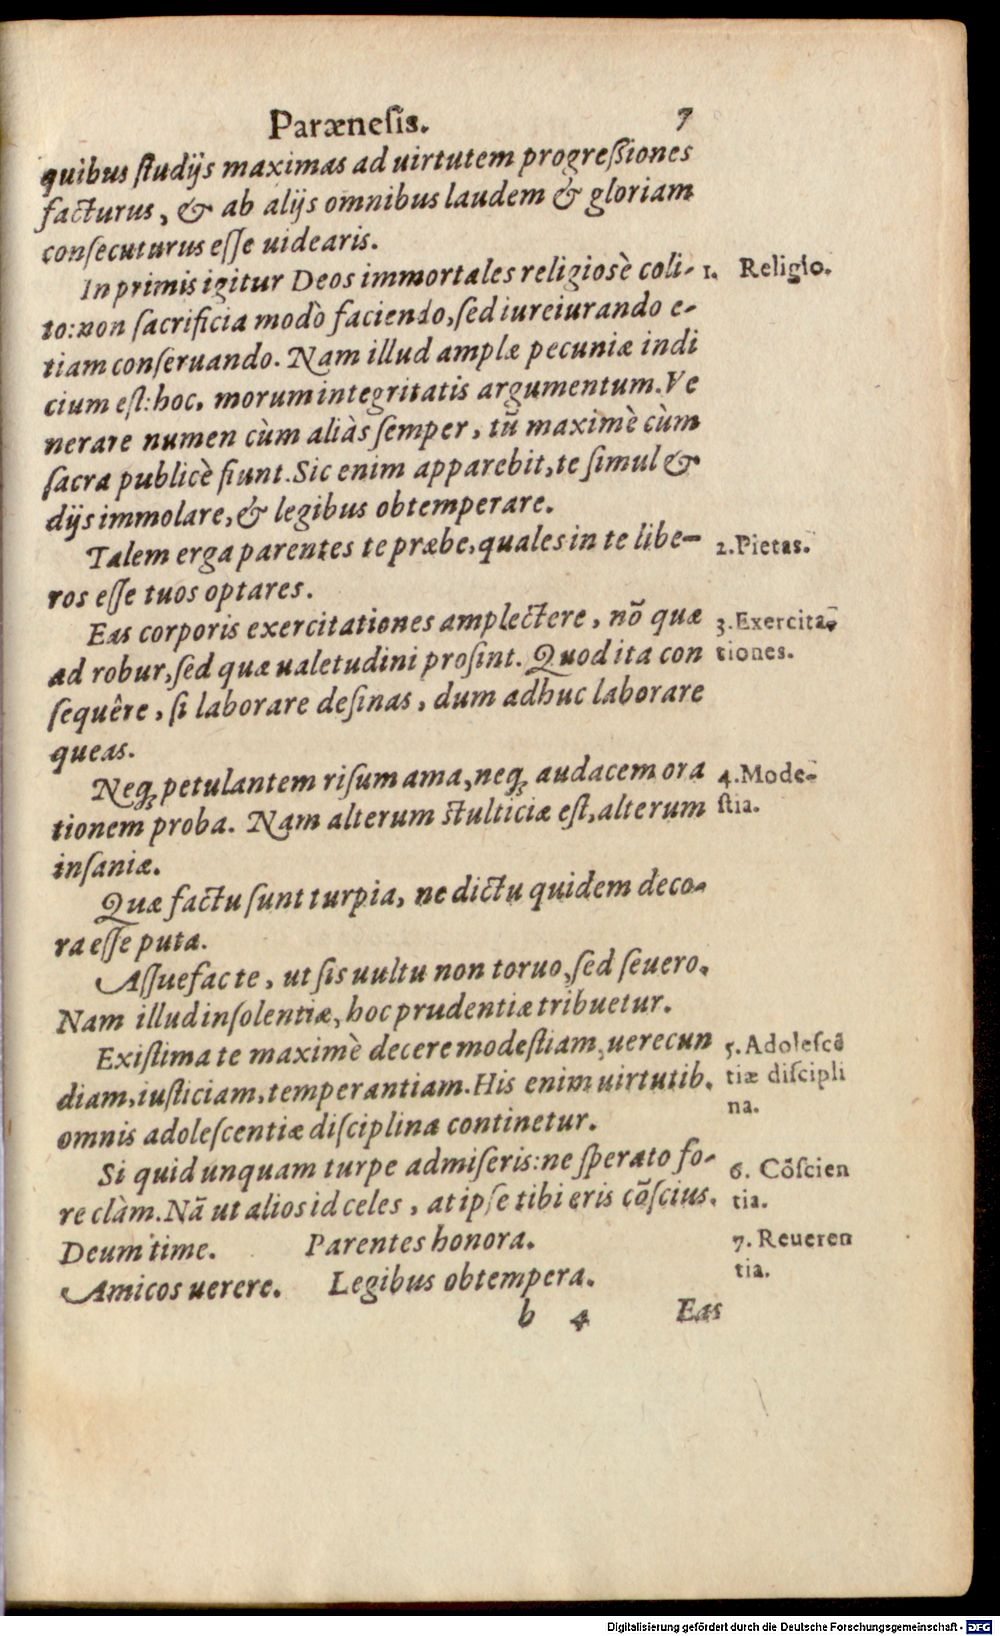 Parænesis. 7
quibus studijs maximas ad uirtutem progreſsiones
facturus, & ab alijs omnibus laudem & gloriam
conſecuturus eſſe uidearis.
In primis igitur Deos immortales religiosè coli- 1. Religio.
to: non ſacrificia modò faciendo, ſed iureiurando e-
tiam conſeruando. Nam illud amplæ pecuniæ indi
cium eſt: hoc, morum integritatis argumentum. Ve
nerare numen cùm aliàs ſemper, tū maximè cùm
ſacra publicè fiunt. Sic enim apparebit, te ſimul &
dijs immolare, & legibus obtemperare.
Talem erga parentes te præbe, quales in te libe- 2. Pietas.
ros eſſe tuos optares.
Eas corporis exercitationes amplectere, nō quæ 3. Exercita-
ad robur, ſed quæ ualetudini proſint. Quod ita con tiones.
ſequêre, ſi laborare deſinas, dum adhuc laborare
queas.
Neq; petulantem riſum ama, neq; audacem ora 4. Mode-
tionem proba. Nam alterum ſtulticiæ eſt, alterum ſtia.
inſaniæ.
Quæ factu ſunt turpia, ne dictu quidem deco-
ra eſſe puta.
Aſſuefac te, ut ſis uultu non toruo, ſed ſeuero.
Nam illud inſolentiæ, hoc prudentiæ tribuetur.
Exiſtima te maximè decere modeſtiam, uerecun 5. Adoleſcē
diam, iuſticiam, temperantiam. His enim uirtutib. tiæ diſcipli
omnis adoleſcentiæ diſciplina continetur. na.
Si quid unquam turpe admiſeris: ne ſperato fo- 6. Cōſcien
re clàm. Nā ut alios id celes, at ipſe tibi eris cōſcius. tia.
Deum time. Parentes honora. 7. Reueren
Amicos uerere. Legibus obtempera. tia.
b 4 Eas
Digitalisierung gefördert durch die Deutsche Forschungsgemeinschaft - DFG